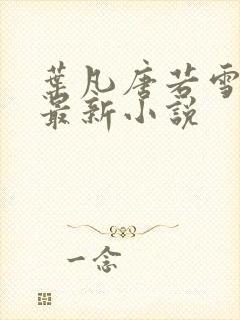 葉凡唐若雪
最新小説
一念